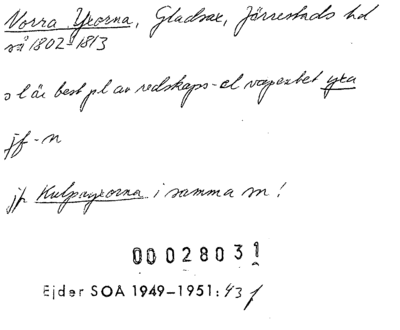 Norra Yxorna, Gladsax, Järrestads hd
så 1802-1813
s l är best pl av redskaps- el vapenbet yxa
jf - n
jfr Kulpayxorna i samma sn!
00028031
Ejder SOA 1949-1951: 43 f